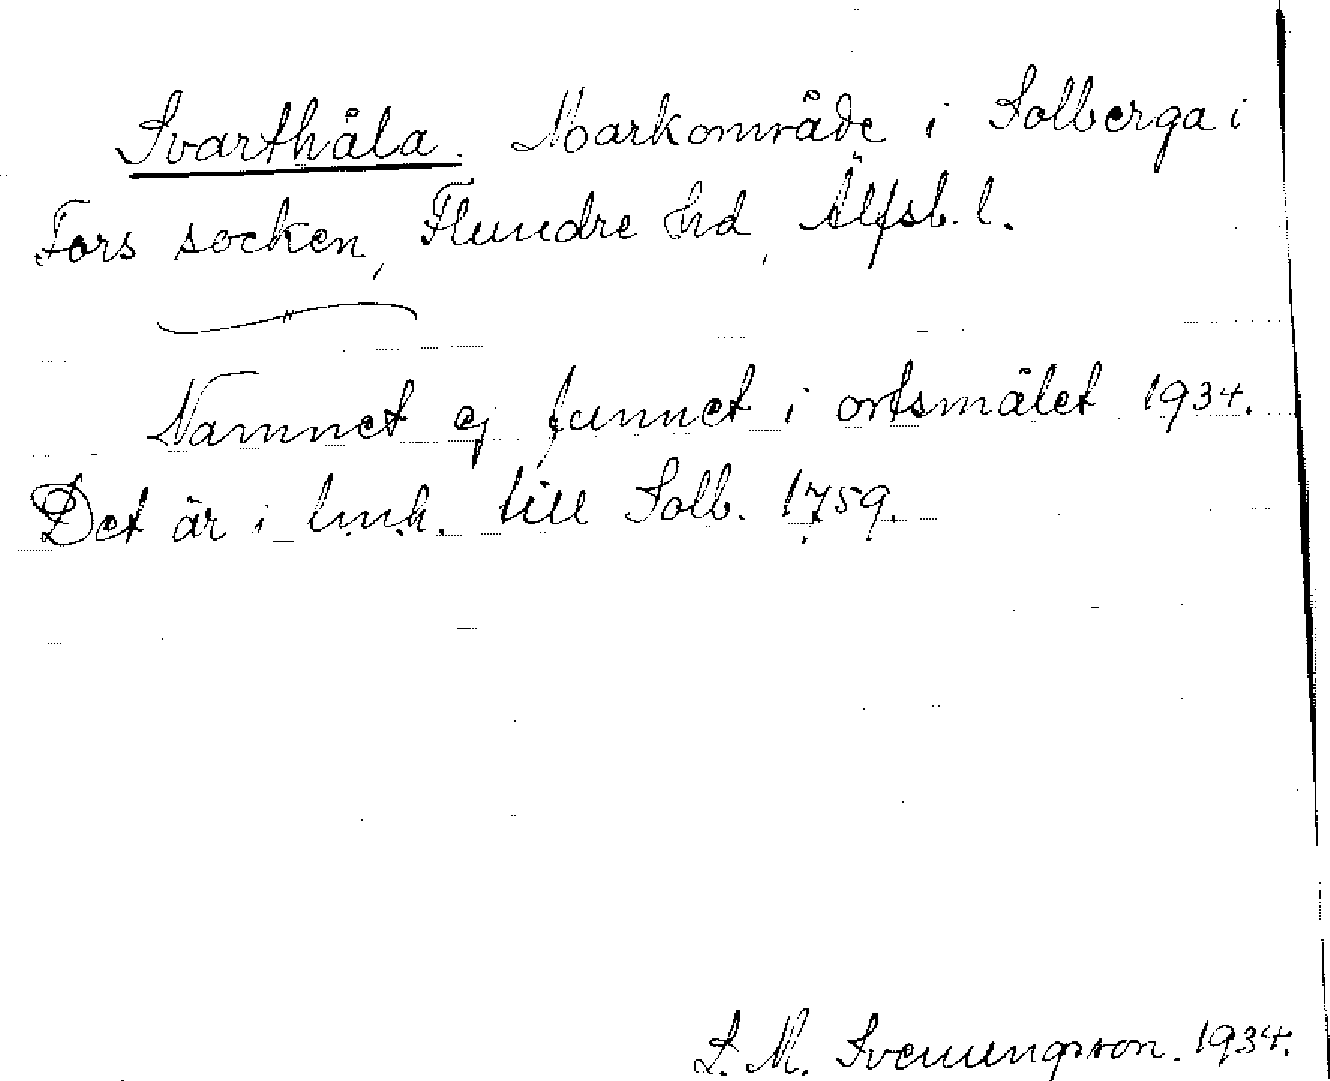 Svarthåla. Markområde i Solberga i
Fors socken, Flundre hd, Älfsb. l.
Namnet ej funnet i ortsmålet 1934.
Det är i lmh. till Solb. 1759.
S. M. Svenungsson. 1934.